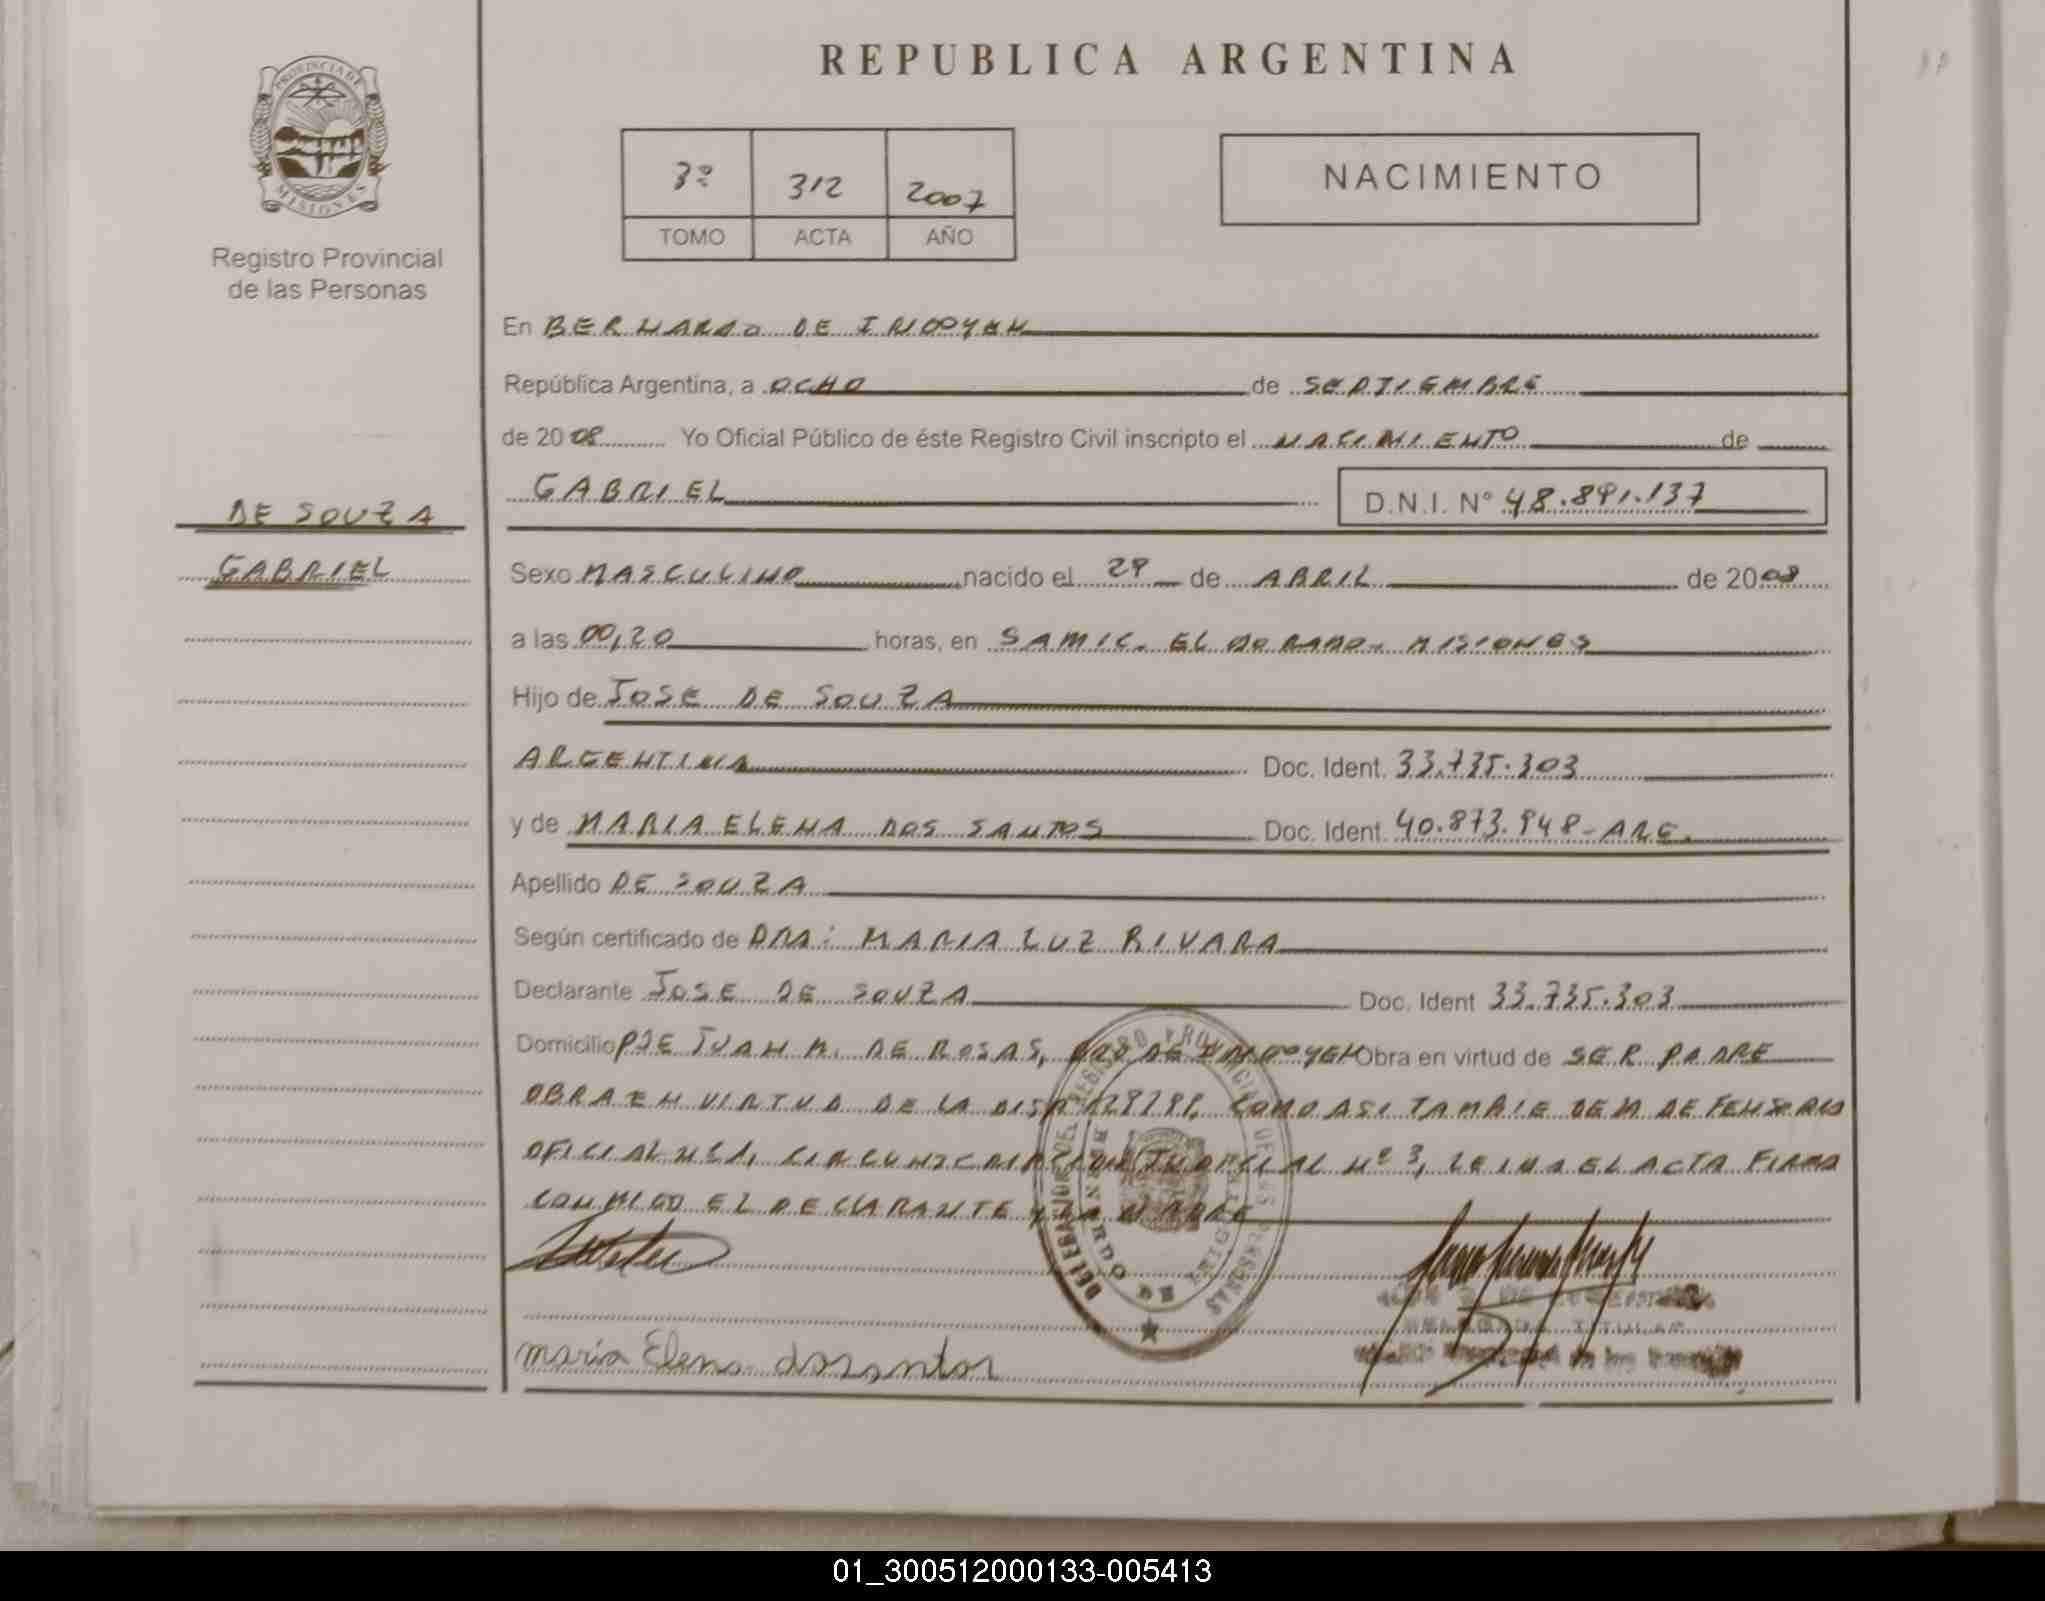 REPUBLICA ARGENTINA
PROVINCIA DE
MISIONES
Registro Provincial
de las Personas
3º 312 2007
TOMO ACTA AÑO
NACIMIENTO
En BERNARDO DE IRIGOYEN
República Argentina, a OCHO de SEPTIEMBRE
de 2008 Yo Oficial Público de éste Registro Civil inscripto el NACIMIENTO de
DE SOUZA
GABRIEL
GABRIEL D.N.I. Nº 48.891.137
Sexo MASCULINO nacido el de ABRIL de 2008
a las 00,20 horas, en SAMIC. ELDORADO. MISIONES
Hijo de JOSE DE SOUZA
ARGENTINA Doc. Ident. 33.735.303
y de MARIA ELENA DOS SANTOS Doc. Ident. 40.873.948-ARG.
Apellido DE SOUZA
Según certificado de DRA: MARIA LUZ RIVARA
Declarante JOSE DE SOUZA Doc. Ident 33.735.303
Domicilio PJE JUAN M. DE ROSAS, BDO DE IRIGOYEN Obra en virtud de SER PADRE
OBRA EN VIRTUD DE LA COMO ASI TAMBIE DE LA DEFENSORIA
OFICIAL CIRCUNSCRIPCION JUDICIAL Nº 3, LEIDA EL ACTA FIRMA
CONMIGO EL DECLARANTE Y LA MADRE
DEL REGISTRO PROVINCIAL DE LAS PERSONAS
BERNARDO DE IRIGOYEN
maria Elena dossantos
TITULAR
01_300512000133-005413